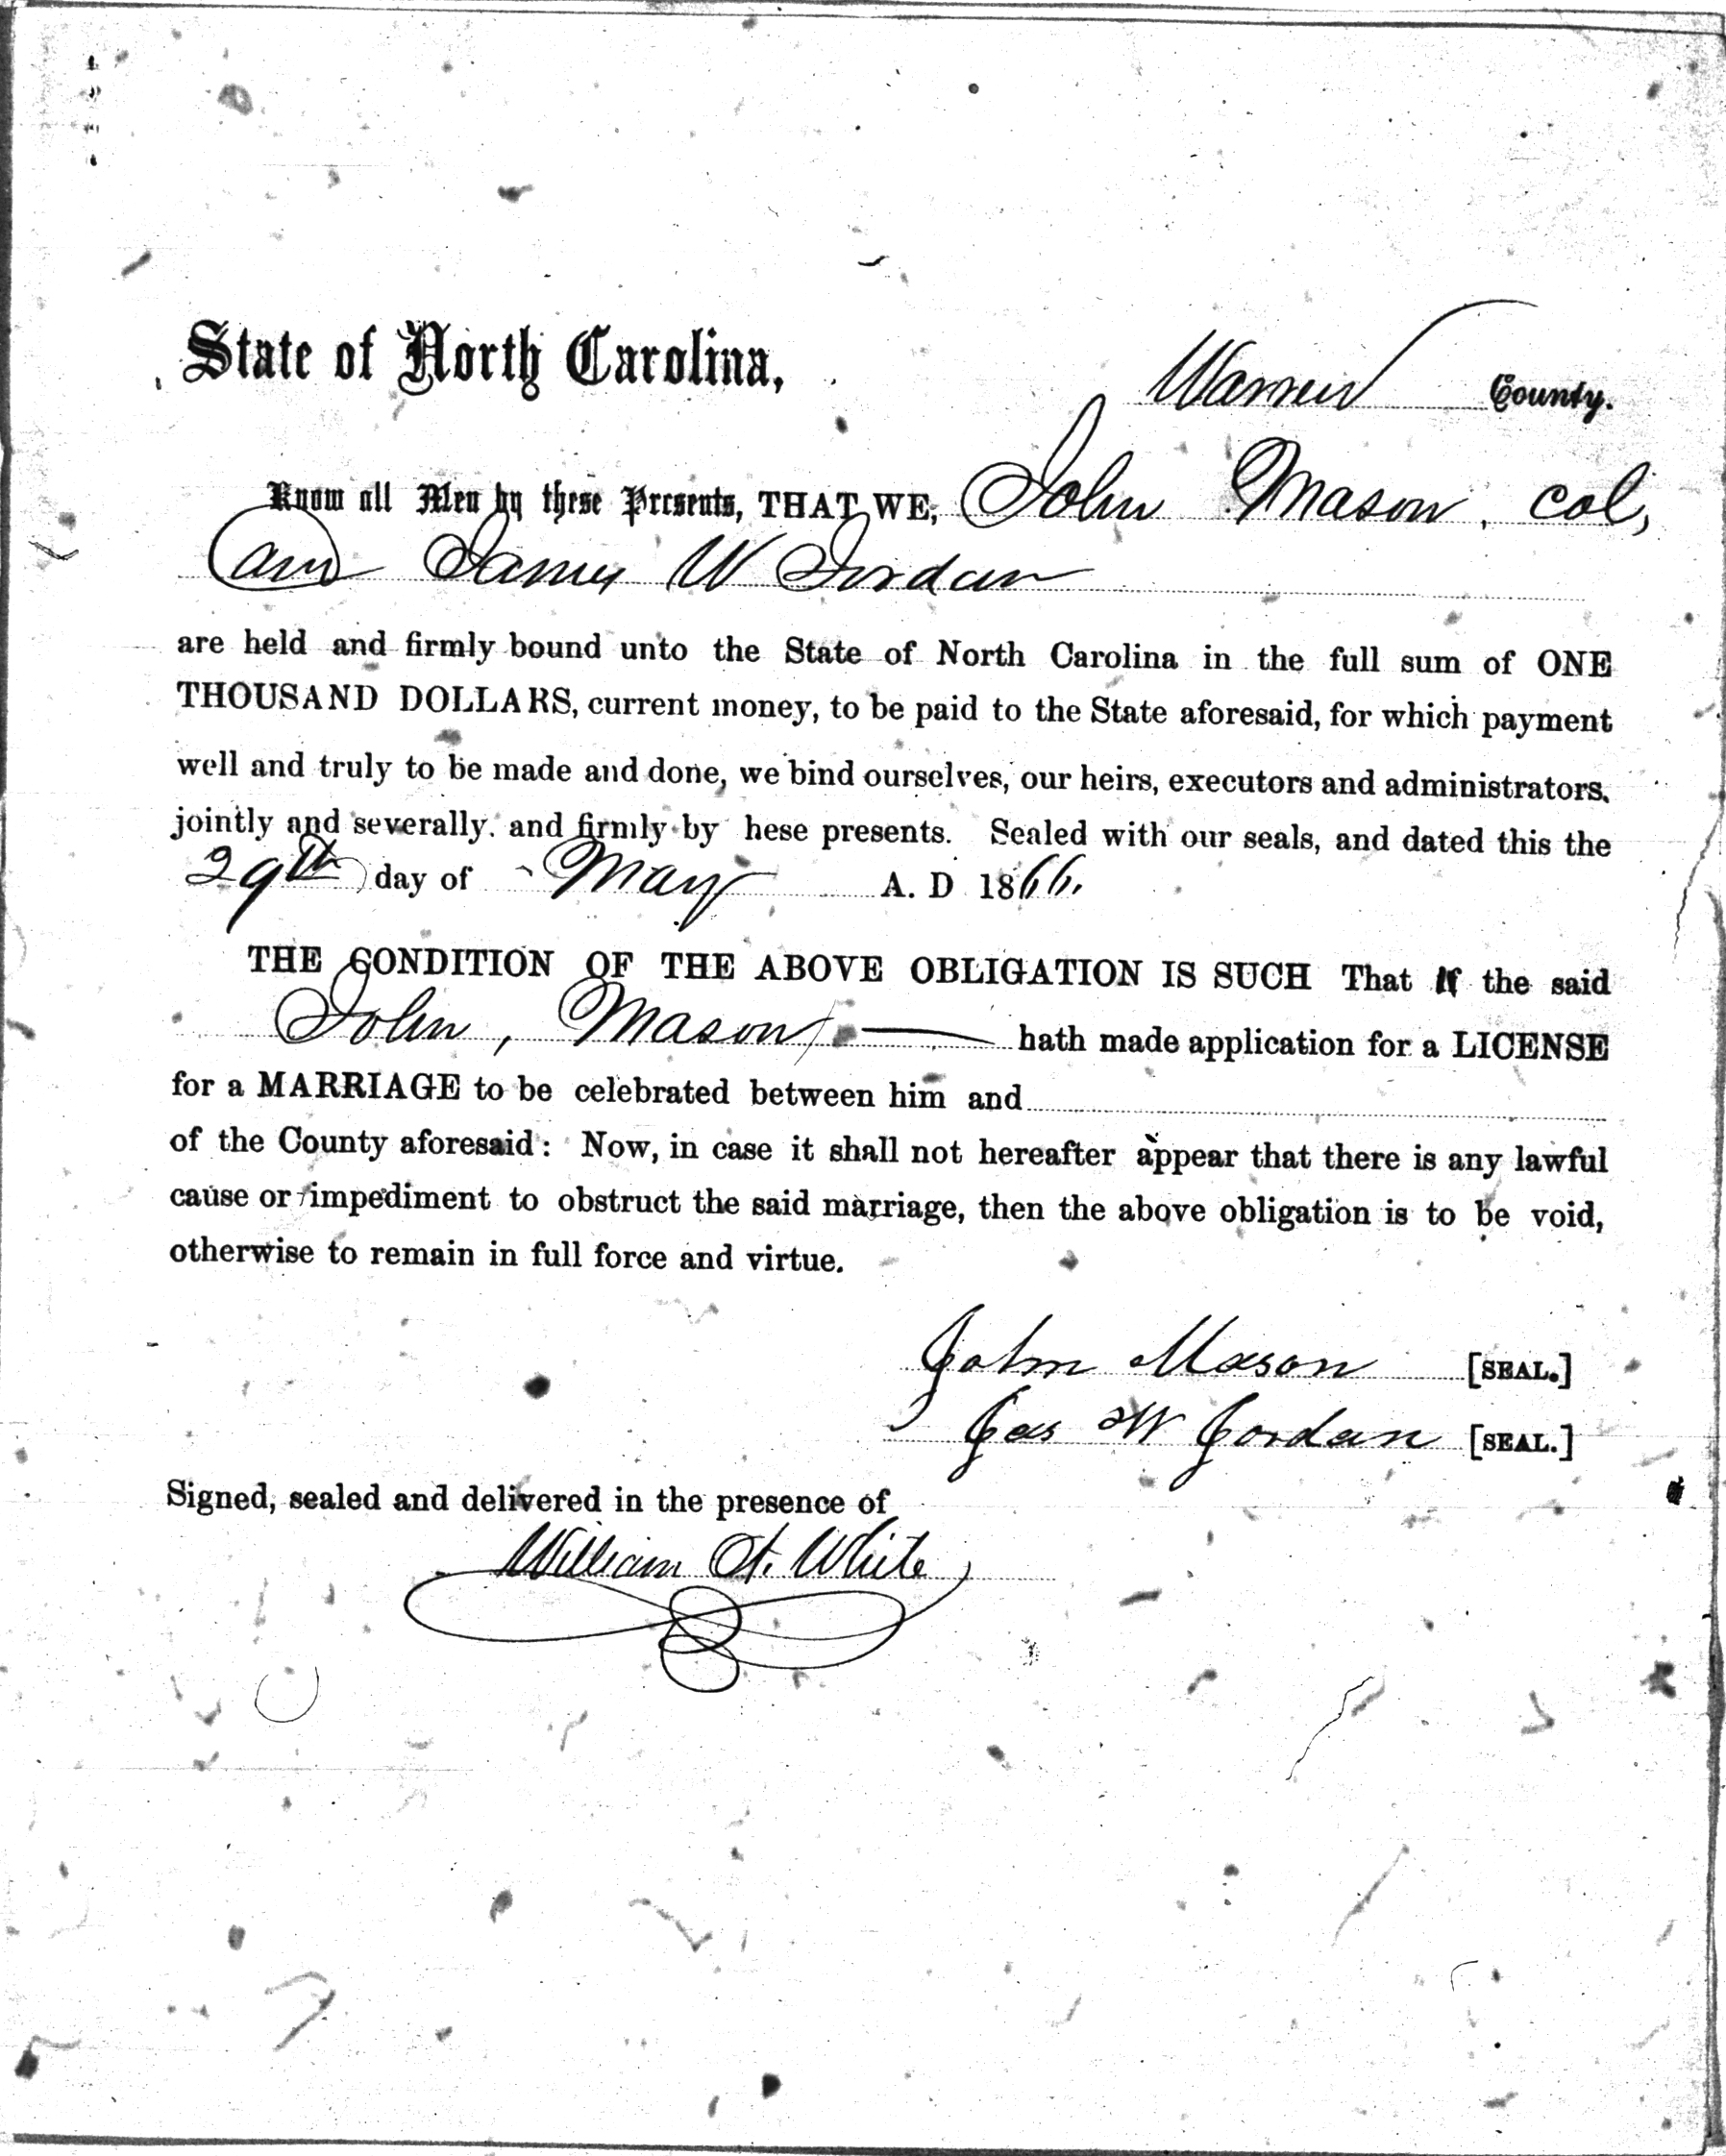 State of North Carolina, Warren County.
Know all Men by these Presents, THAT WE, John Mason, col,
and James W Jordan
are held and firmly bound unto the State of North Carolina in the full sum of ONE
THOUSAND DOLLARS, current money, to be paid to the State aforesaid, for which payment
well and truly to be made and done, we bind ourselves, our heirs, executors and administrators,
jointly and severally. and firmly by hese presents. Sealed with our seals, and dated this the
29th day of May A. D 1866.
THE CONDITION OF THE ABOVE OBLIGATION IS SUCH That if the said
John, Mason hath made application for a LICENSE
for a MARRIAGE to be celebrated between him and
of the County aforesaid: Now, in case it shall not hereafter appear that there is any lawful
cause or impediment to obstruct the said marriage, then the above obligation is to be void,
otherwise to remain in full force and virtue.
John Mason [SEAL.]
Jas W Jordan [SEAL.]
Signed, sealed and delivered in the presence of
William A. White